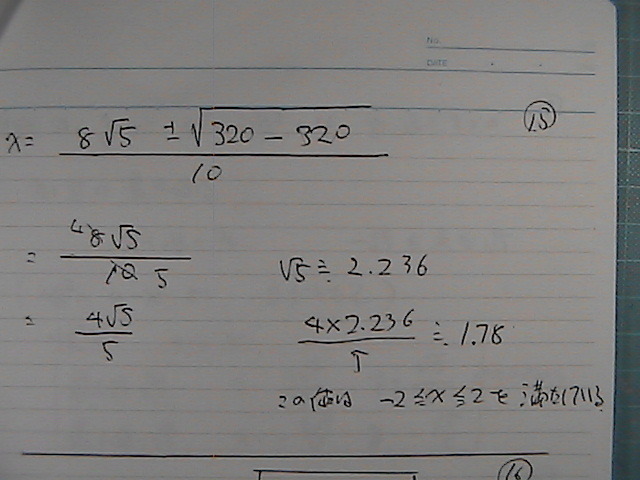 NO.
DATE
⑮
x = (8√5 ±√(320 − 320)) / 10
= 4 8√5 / 10 5
√5 ≒ 2.236
= 4√5 / 5
4×2.236 / 5 ≒ 1.78
この値は -2≦x≦2を満たしている
⑯